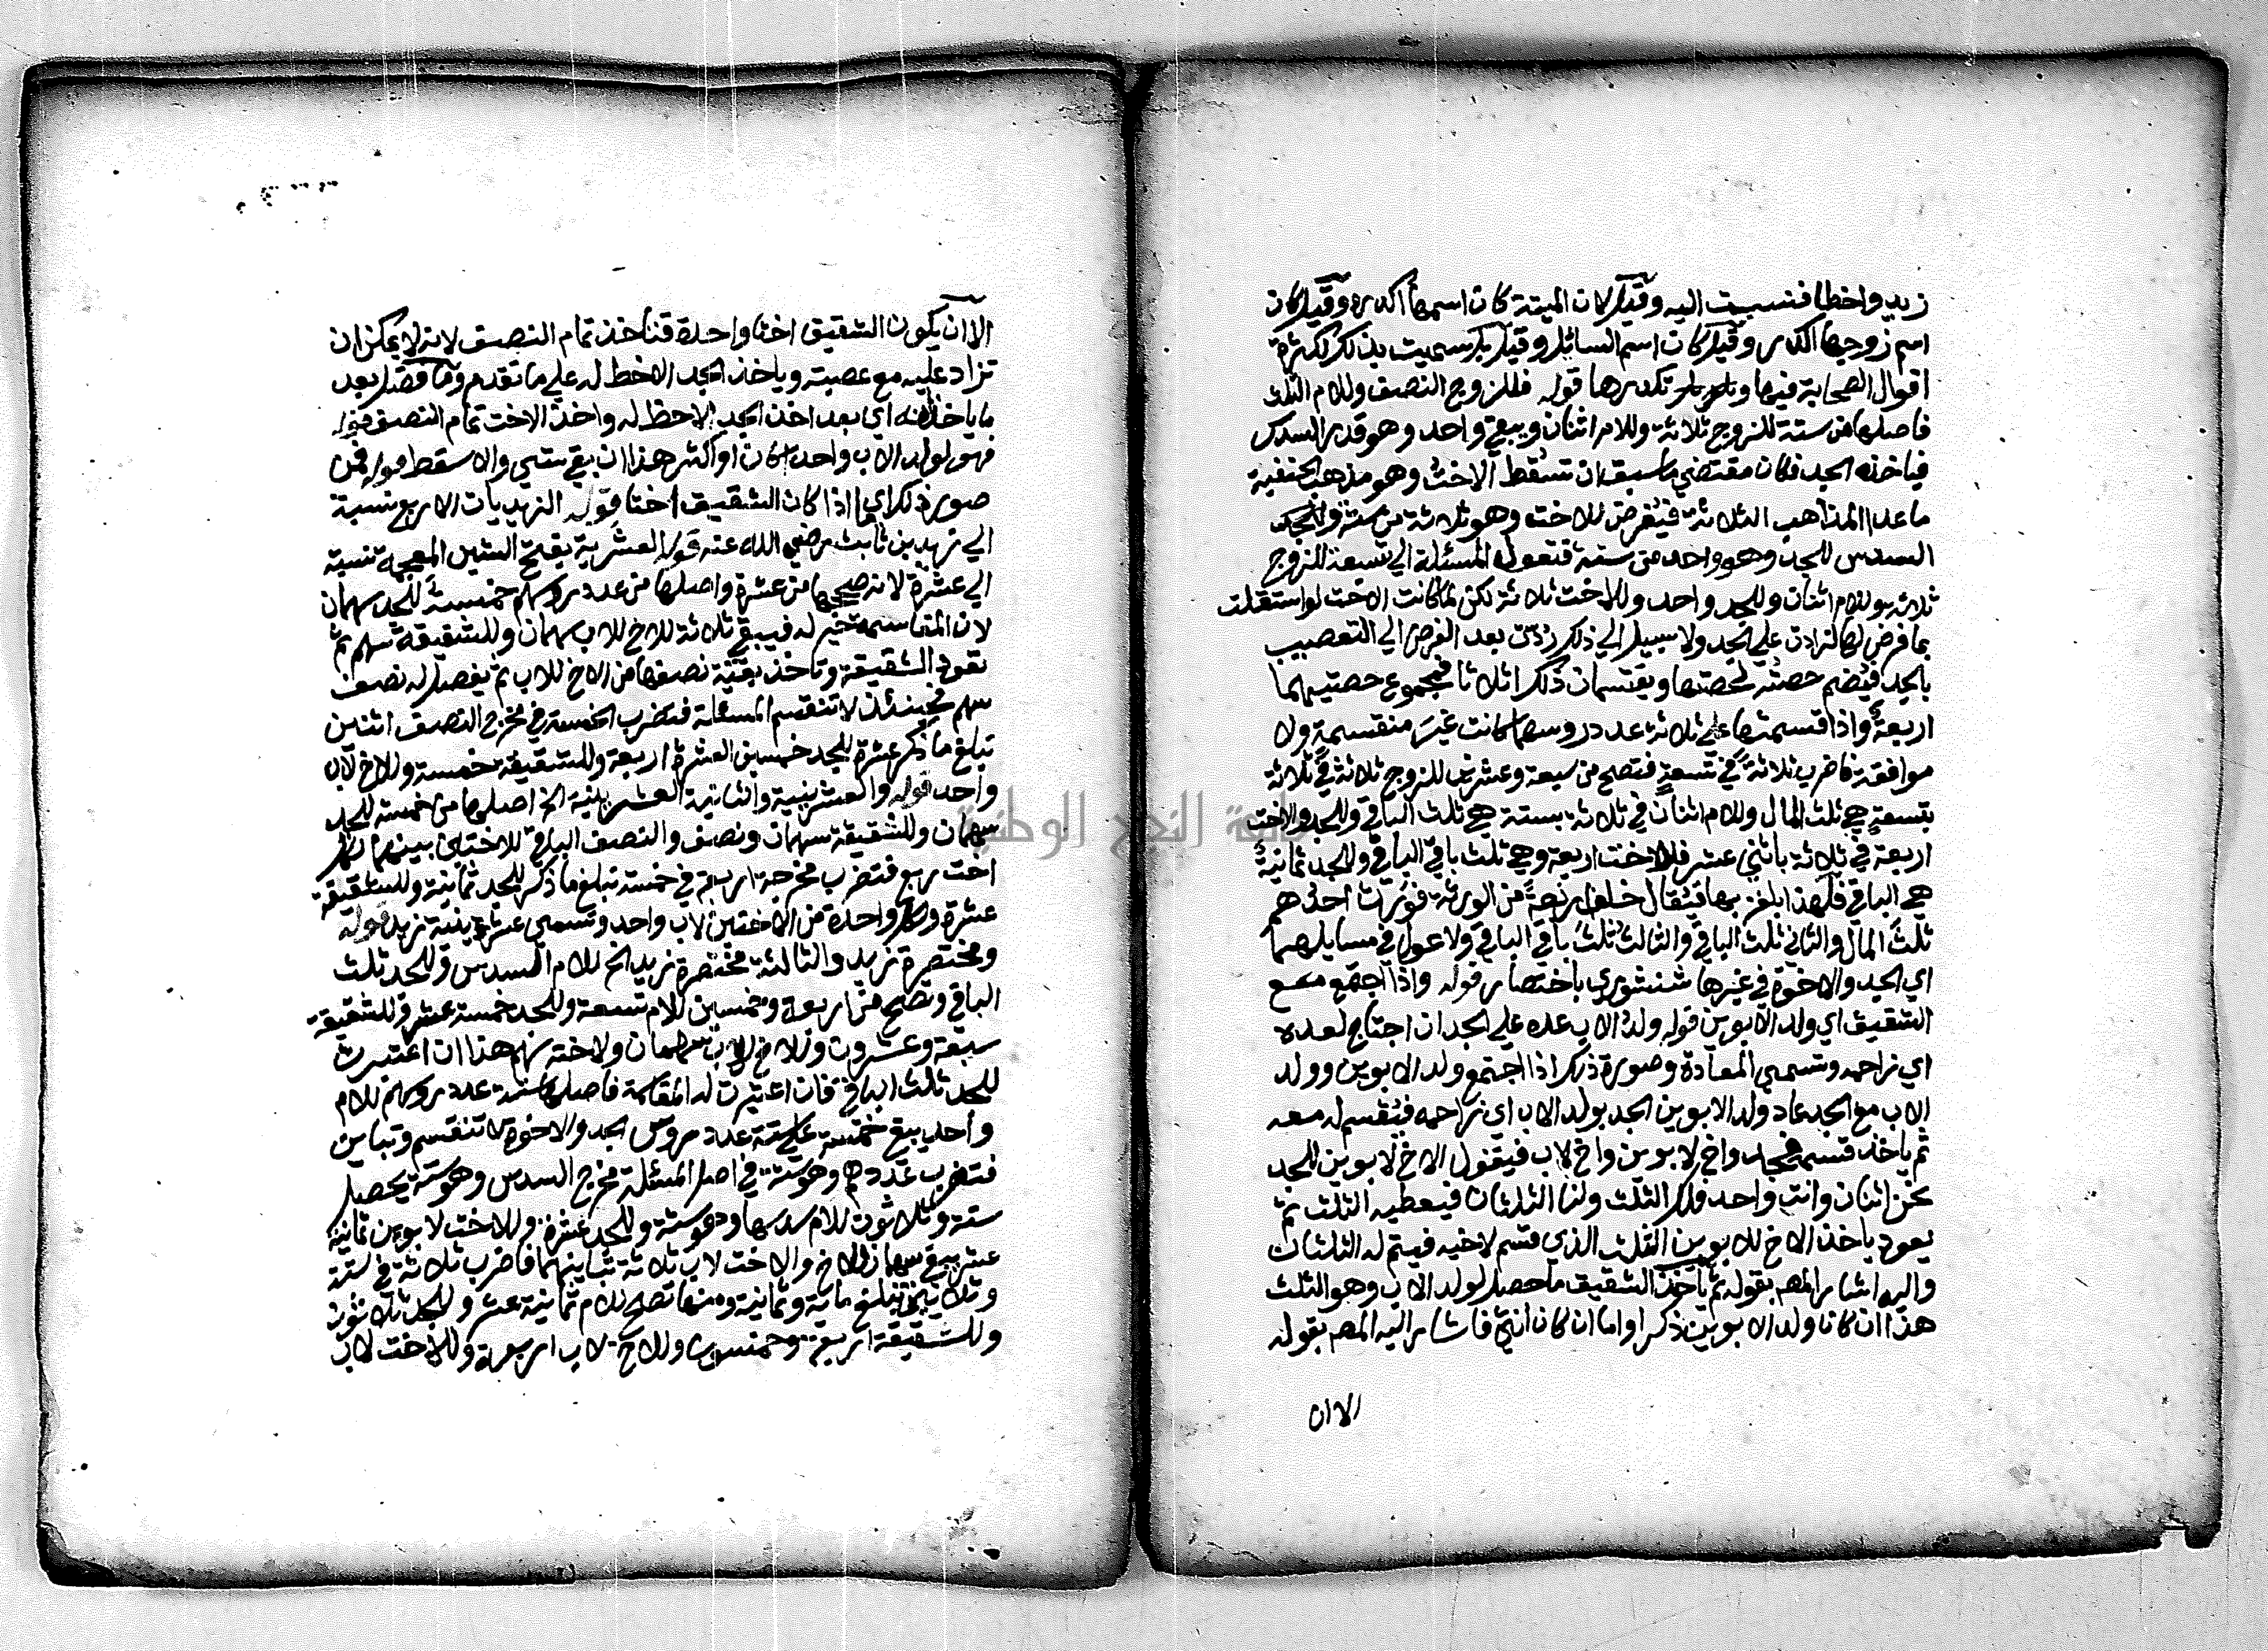 زيد واخطا فنسبت اليه وقيل لان الميتة كان اسمها اكدره وقيل كان
اسم زوجها اكدر وقيل كان اسم السائل وقيل بل سميت بذلك لكثرة
اقوال الصحابة فيها وتكدرها قوله فللزوج النصف وللام الثلث
فاصلها من ستة للزوج ثلاثة وللام اثنان ويبقى واحد وهو قدر السدس
فياخذه الجد فكان مقتضي ماسبق ان تسقط الاخت وهو مذهب الحنفية
ماعدا المذاهب الثلاثة فيفرض للاخت وهو ثلاثة من ستة وللجد
السدس للجد وهو واحد من ستة فتعول المسئلة الي تسعة للزوج
ثلاثة وللام اثنان وللجد واحد وللاخت ثلاثة لكن لما كانت الاخت لو استقلت
بما فرض لها لزادت علي الجد ولا سبيل الي ذلك ردت بعد الفرض الي التعصيب
بالجد فيضم حصته لحصتها ويقتسمان ذلك اثلاثا فمجموع حصتيهما
اربعة واذا قسمتها علي ثلاثة عدد روسهما كانت غير منقسمة ولا
موافقة فاضرب ثلاثة في تسعة فتصح من سبعة وعشرين للزوج ثلاثة في ثلاثة
بتسعة هي ثلث المال وللام اثنان في ثلاثة بستة هي ثلث الباقي وللجد والاخت
اربعة في ثلاثة باثني عشر فللاخت اربعة وهي ثلث باقي الباقي وللجد ثمانية
هي الباقي فلهذا يلغز بها فيقال خلف اربعة من الورثة فورث احدهم
ثلث المال والثاني ثلث الباقي والثالث ثلث باقي الباقي ولا عول في مسايلهما
اي الجد والاخوة في غيرها شنشوري باختصار قوله واذا اجتمع مع
الشقيق اي ولد الابوين قوله ولد الاب عده علي الجد ان احتاج لعده
اي زاحمه وتسمي المعادة وصورة ذلك اذا اجتمع ولد الابوين وولد
الاب مع الجد عاد ولد الابوين الجد بولد الاب اي زاحمه فيقسم له معه
ثم ياخذ قسمه فجد واخ لابوين واخ لاب فيقول الاخ لابوين للجد
نحن اثنان وانت واحد فلك الثلث ولنا الثلثان فيعطيه الثلث ثم
يعود ياخذ الاخ للابوين الثلث الذي قسم لاخيه فيتم له الثلثان
واليه اشار المص بقوله ثم ياخذ الشقيق ماحصل لولد الاب وهو الثلث
هذا ان كان ولد الابوين ذكرا واما ان كان انثي فاشار اليه المص بقوله
الا ان
الا ان يكون الشقيق اختا واحدة فتاخذ تمام النصف لانه لا يمكن ان
تزاد عليه مع عصبته وياخذ الجد الاحظ له علي ما تقدم وما فضل بعد
ما ياخذانه اي بعد اخذ الجد الاحظ له واخذ الاخت تمام النصف قوله
فهو لولد الاب واحدا كان او اكثر هذا ان بقي شي والا سقط قوله فمن
صور ذلك اي اذا كان الشقيق اختا قوله الزيديات الاربع نسبة
الي زيد بن ثابت رضي الله عنه قوله العشرية بفتح الشين المعجمة نسبة
الي عشرة لانه صححها من عشرة واصلها من عدد روسهم خمسة للجد سهمان
لان المقاسمة خير له فيبقي ثلاثة للاخ للاب سهمان وللشقيقة سهم ثم
تعود الشقيقة وتاخذ بقية نصفها من الاخ للاب ثم يفضل له نصف
سهم فحينئذ لا تنقسم المسئلة فتضرب الخمسة في مخرج النصف اثنين
تبلغ ما ذكر عشرة للجد خمسين العشرة اربعة وللشقيقة خمسة وللاخ لاب
واحد قوله والعشرينية والثانية العشرينية الخ اصلها من خمسة للجد
سهمان وللشقيقة سهمان ونصف والنصف الباقي للاختين بينهما لكل
اخت ربع فتضرب مخرجه اربعة في خمسة تبلغ ما ذكر للجد ثمانية وللشقيقة
عشرة ولكل واحدة من الاختين لاب واحد وتسمي عشرينية زيد قوله
ومختصرة زيد والثالثة مختصرة زيد الخ للام السدس وللجد ثلث
الباقي وتصح من اربعة وخمسين للام تسعة وللجد خمسة عشر وللشقيقة
سبعة وعشرون وللاخ للاب سهمان ولاخته سهم هذا ان اعتبرت
للجد ثلث الباقي فان اعتبرت له المقاسمة فاصلها ستة عدد روسهم للام
واحد يبقي خمسة علي ستة عدد روس الجد والاخوة لا تنقسم وتباين
فتضرب عددهم وهو ستة في اصل المسئلة مخرج السدس وهو ستة يحصل
ستة وثلاثون للام سدسها وهو ستة وللجد عشرة وللاخت لابوين ثمانية
عشر يبقي سهمان للاخ والاخت لاب ثلاثة تباينهما فاضرب ثلاثة في ستة
وثلاثين تبلغ ماية وثمانية ومنها تصح للام ثمانية عشر وللجد ثلاثون
وللشقيقة اربعة وخمسون وللاخ لاب اربعة وللاخت لاب
جامعة النجاح الوطنية